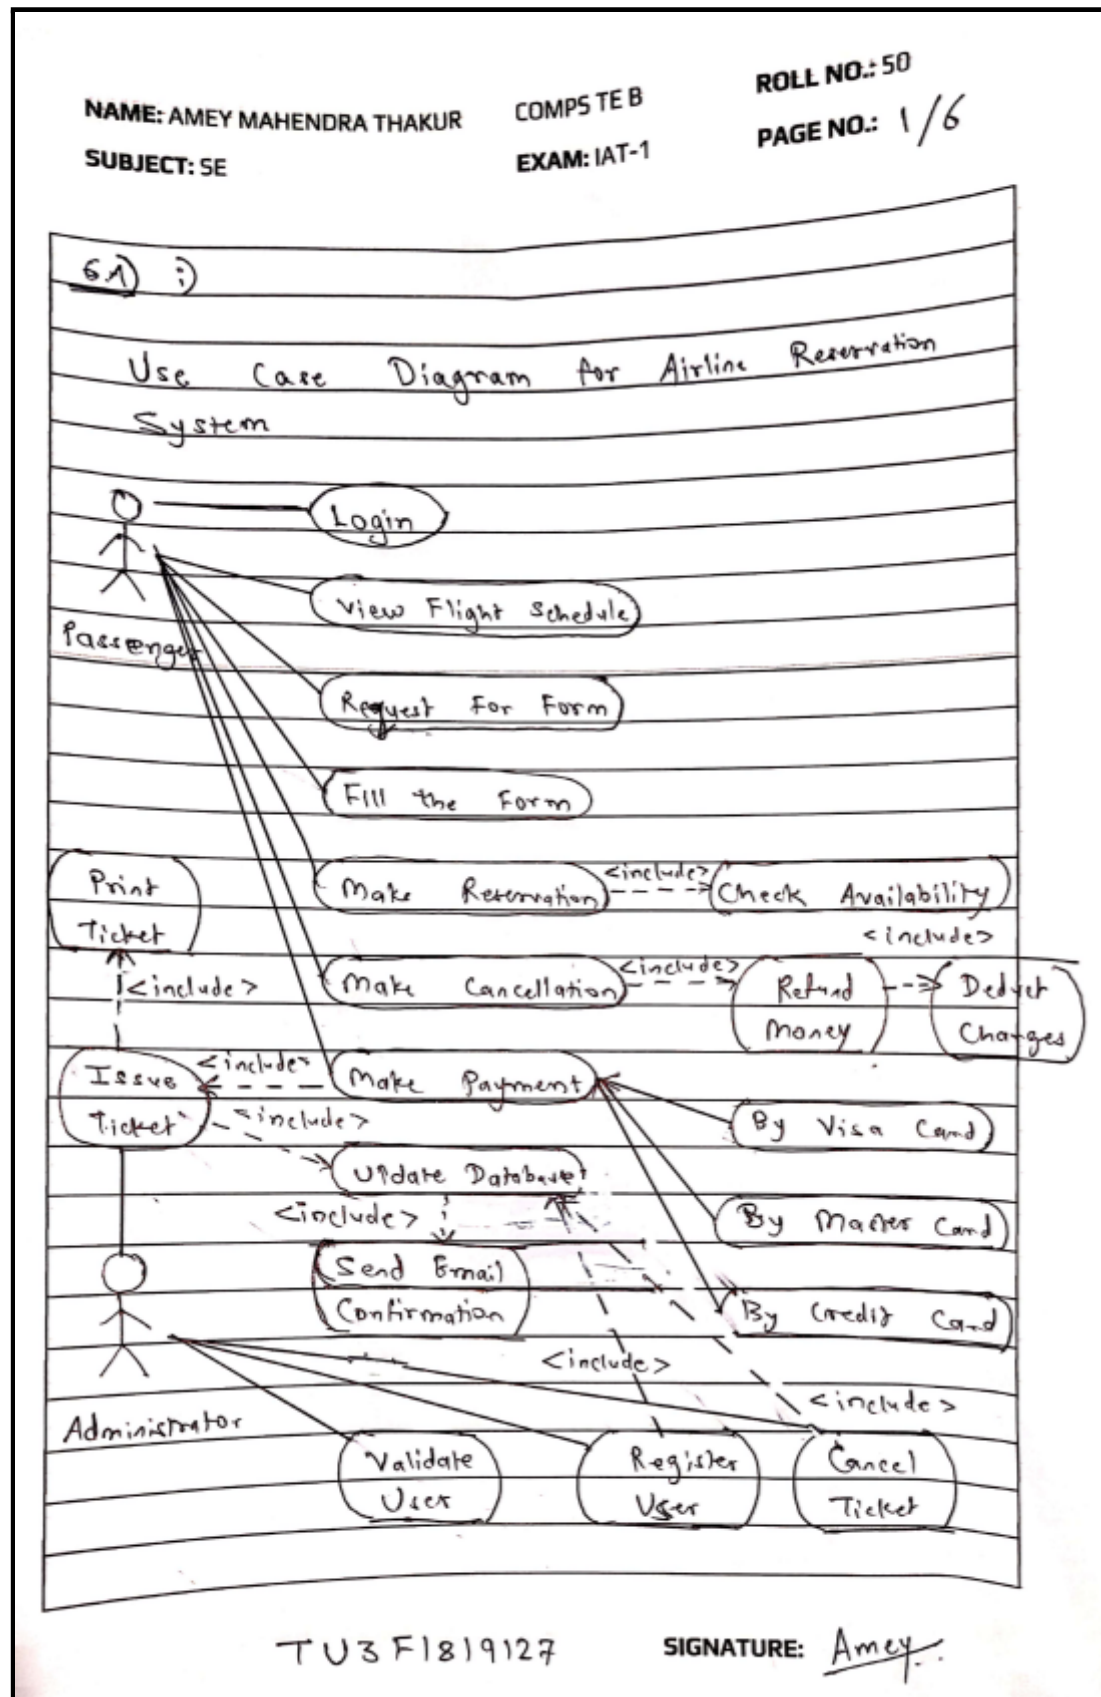 NAME: AMEY MAHENDRA THAKUR COMPS TE B ROLL NO.: 50
SUBJECT: SE EXAM: IAT-1 PAGE NO.: 1/6
i)
Use Case Diagram for Airline Reservation
System
Login
View Flight Schedule
Passenger
Request For Form
Fill the Form
Print
Ticket
Make Reservation <include> Check Availability
<include>
<include>
Make Cancellation <include> Refund
Money
Deduct
Changes
Issue
Ticket
<include> Make Payment
<include>
By Visa Card
Update Database
<include>
By Master Card
Send Email
Confirmation
By Credit Card
<include>
<include>
Administrator
Validate
User
Register
User
Cancel
Ticket
TU3F1819127 SIGNATURE: Amey